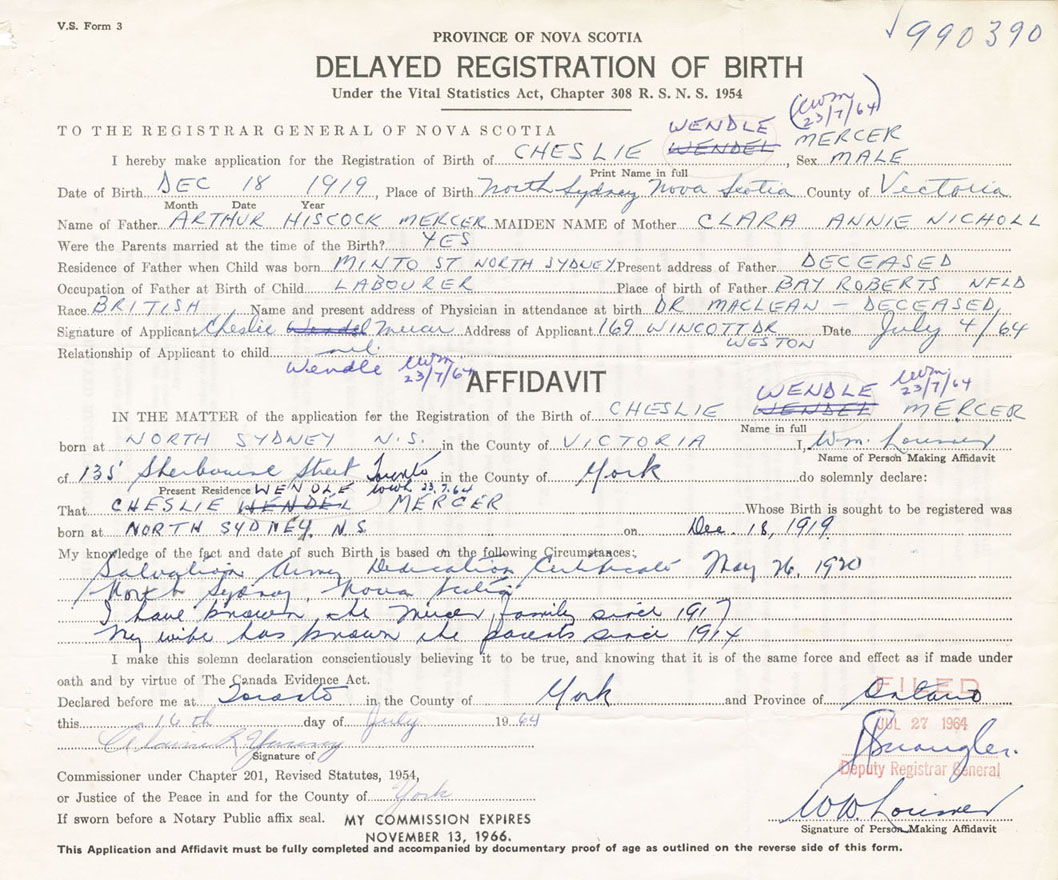 V.S. Form 3
990390
PROVINCE OF NOVA SCOTIA
DELAYED REGISTRATION OF BIRTH
Under the Vital Statistics Act, Chapter 308 R. S. N. S. 1954
TO THE REGISTRAR GENERAL OF NOVA SCOTIA
WENDLE 23/7/64
I hereby make application for the Registration of Birth of CHESLIE WENDEL MERCER, Sex MALE
Print Name in full
Date of Birth DEC 18 1919, Place of Birth North Sydney Nova Scotia County of Victoria
Month Date Year
Name of Father ARTHUR HISCOCK MERCER MAIDEN NAME of Mother CLARA ANNIE NICHOLL
Were the Parents married at the time of the Birth? YES
Residence of Father when Child was born MINTO ST NORTH SYDNEY Present address of Father DECEASED
Occupation of Father at Birth of Child LABOURER Place of birth of Father BAY ROBERTS NFLD
Race BRITISH Name and present address of Physician in attendance at birth DR MACLEAN - DECEASED
Signature of Applicant Cheslie Wendel Mercer Address of Applicant 169 WINCOTT DR WESTON Date July 4/64
Relationship of Applicant to child
Wendle 23/7/64
AFFIDAVIT
WENDLE 23/7/64
IN THE MATTER of the application for the Registration of the Birth of CHESLIE WENDEL MERCER
Name in full
born at NORTH SYDNEY N.S. in the County of VICTORIA I, Wm.
Name of Person Making Affidavit
of 135 Sherbourne Street Toronto in the County of York do solemnly declare:
Present Residence WENDLE 23.7.64
That CHESLIE WENDEL MERCER Whose Birth is sought to be registered was
born at NORTH SYDNEY, N.S on Dec. 18, 1919
My knowledge of the fact and date of such Birth is based on the following Circumstances:
Salvation Army Dedication Certificate May 26, 1920
North Sydney, Nova Scotia
I have known the Mercer family since 1917
My wife has known the parents since 1914
I make this solemn declaration conscientiously believing it to be true, and knowing that it is of the same force and effect as if made under
oath and by virtue of The Canada Evidence Act.
Declared before me at Toronto in the County of York and Province of Ontario
FILED
this 16th day of July 1964
JUL 27 1964
Signature of
Deputy Registrar General
Commissioner under Chapter 201, Revised Statutes, 1954,
or Justice of the Peace in and for the County of York
If sworn before a Notary Public affix seal. MY COMMISSION EXPIRES
NOVEMBER 13, 1966.
Signature of Person Making Affidavit
This Application and Affidavit must be fully completed and accompanied by documentary proof of age as outlined on the reverse side of this form.